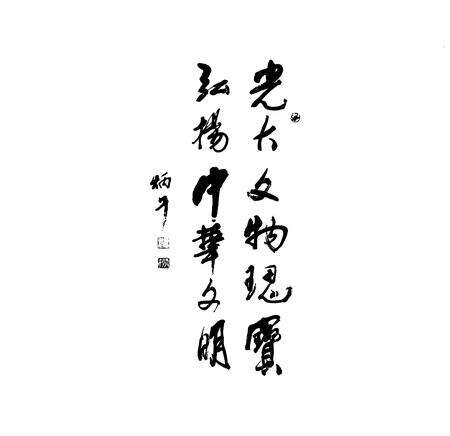 光大文物瑰寶
弘揚中華文明
炳午